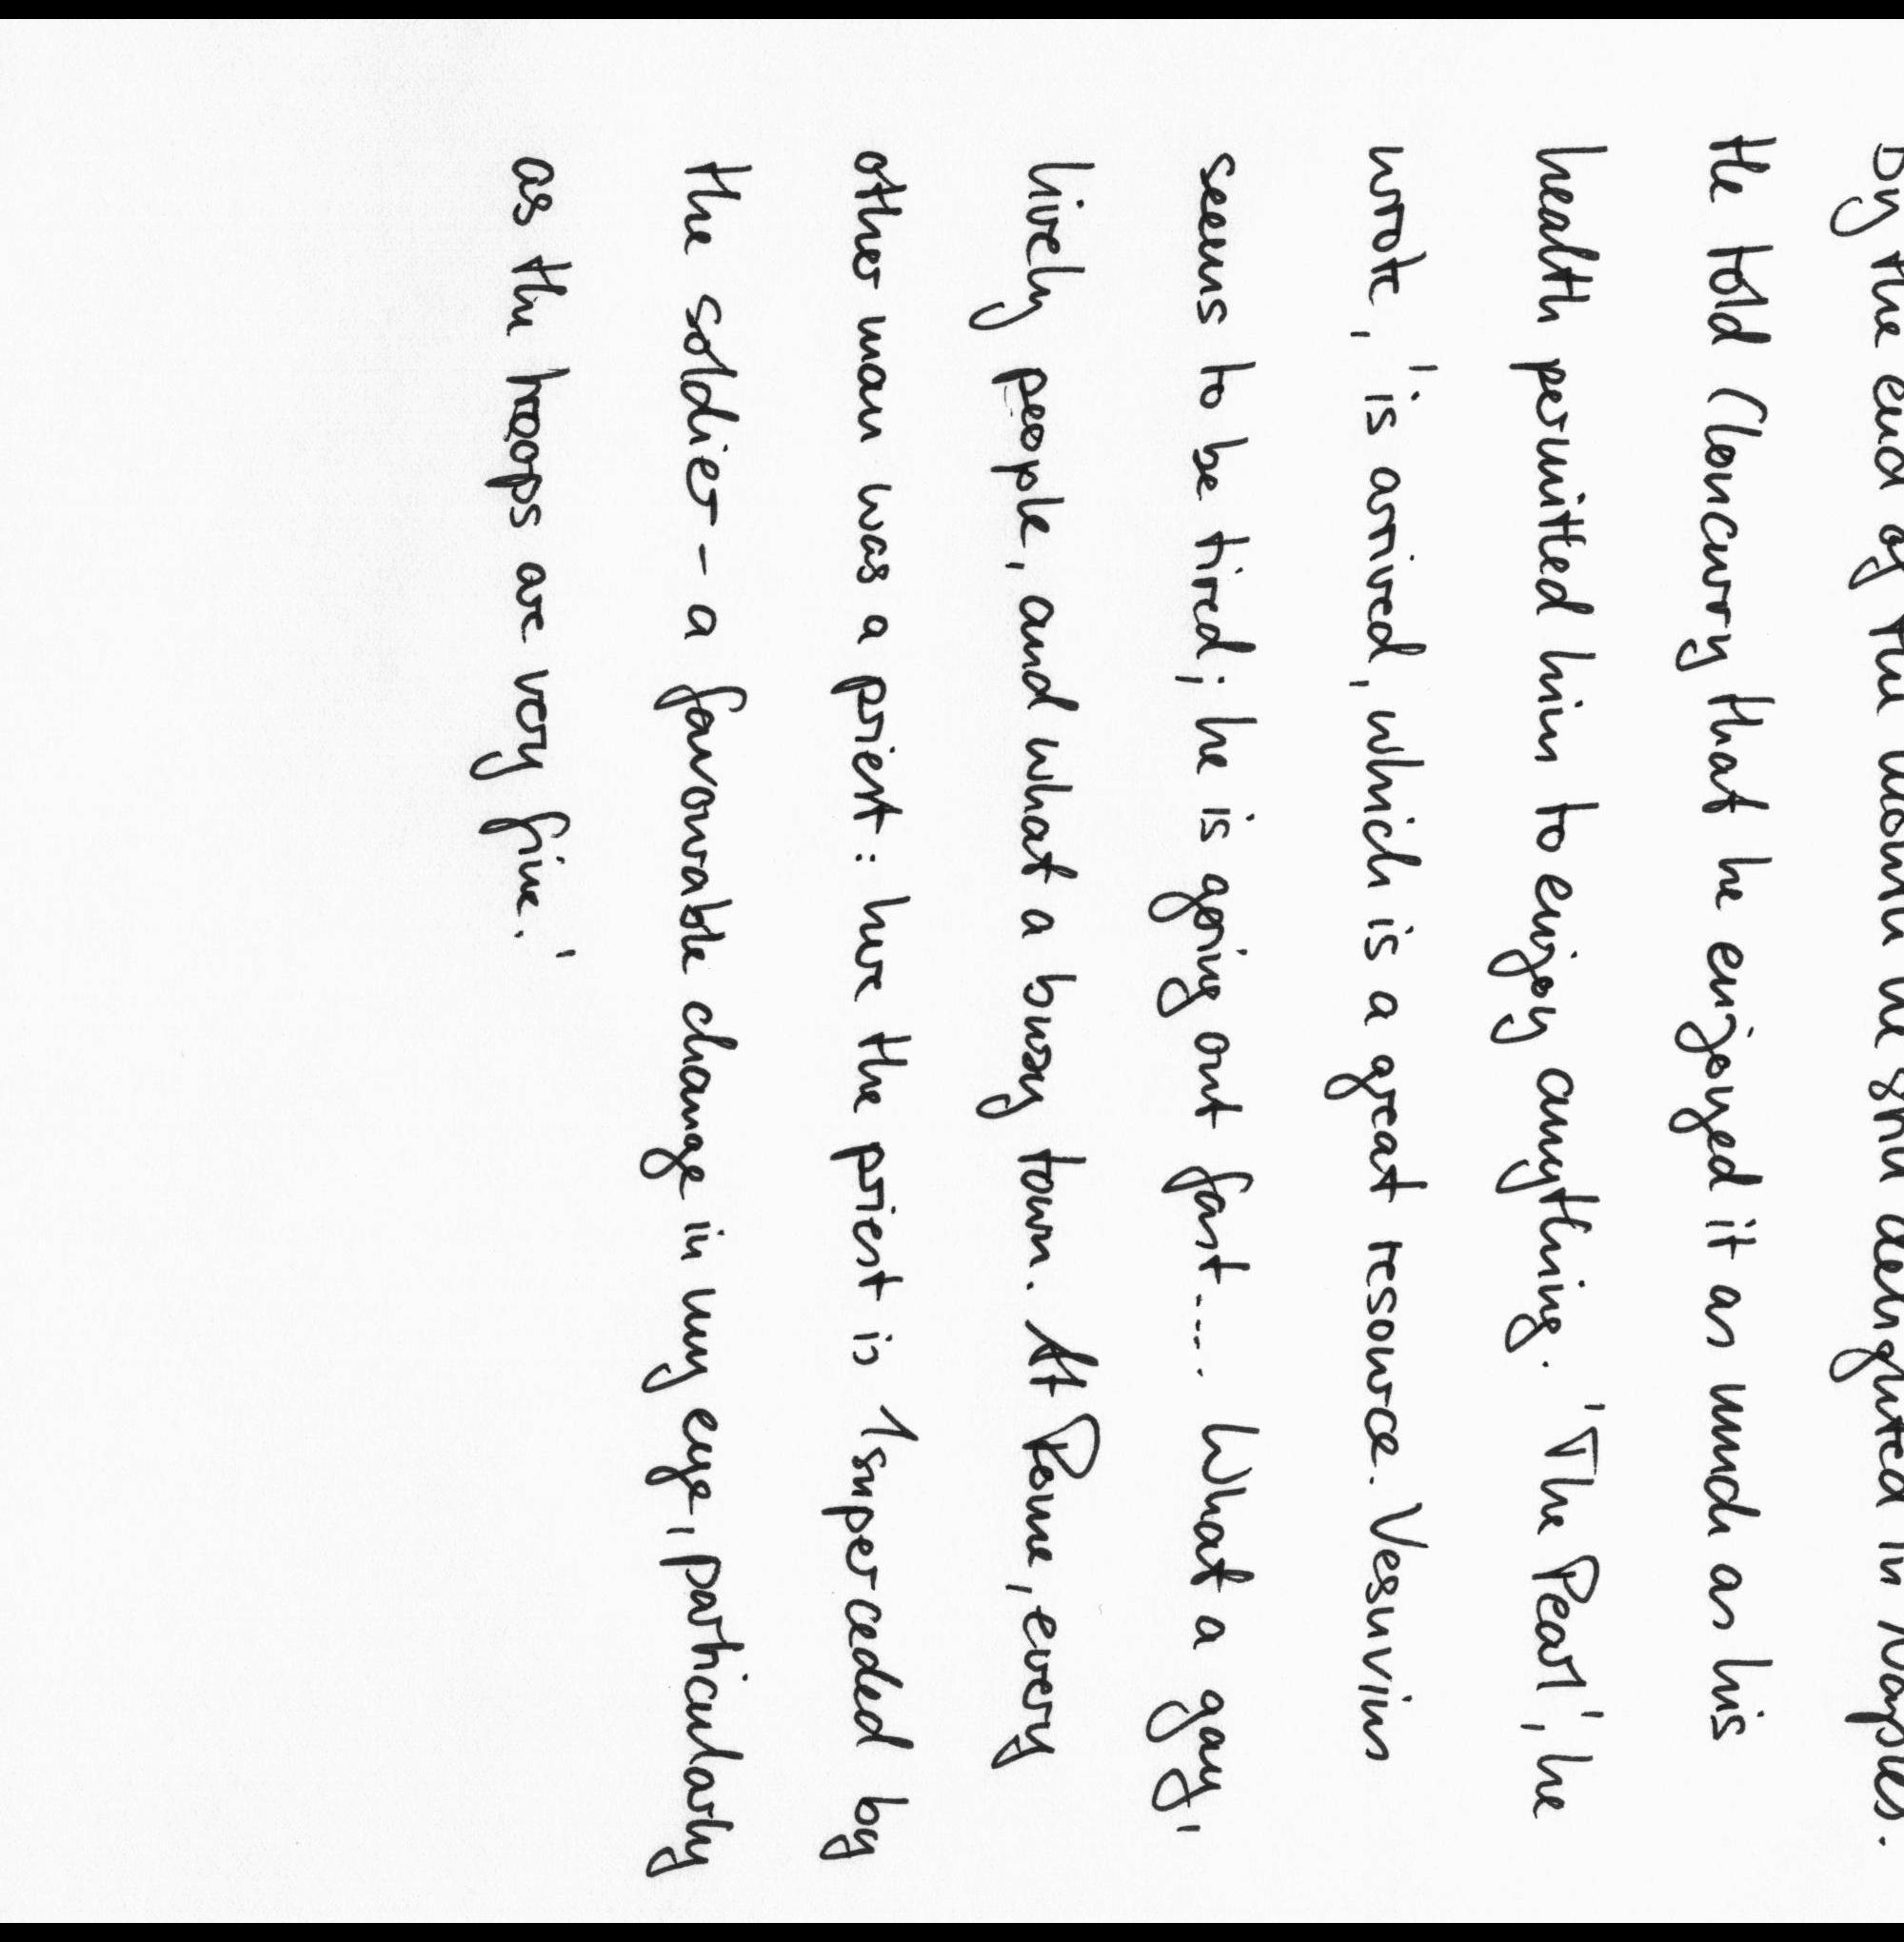 By the end of the month he still delighted in Naples.
He told Cloncurry that he enjoyed it as much as his
health permitted him to enjoy anything. 'The Pearl', he
wrote, 'is arrived, which is a great resource. Vesuvius
seems to be tired; he is going out fast.... What a gay,
lively people, and what a busy town. At Rome, every
other man was a priest: here the priest is superceded by
the soldier - a favourable change in my eye, particularly
as the troops are very fine.'